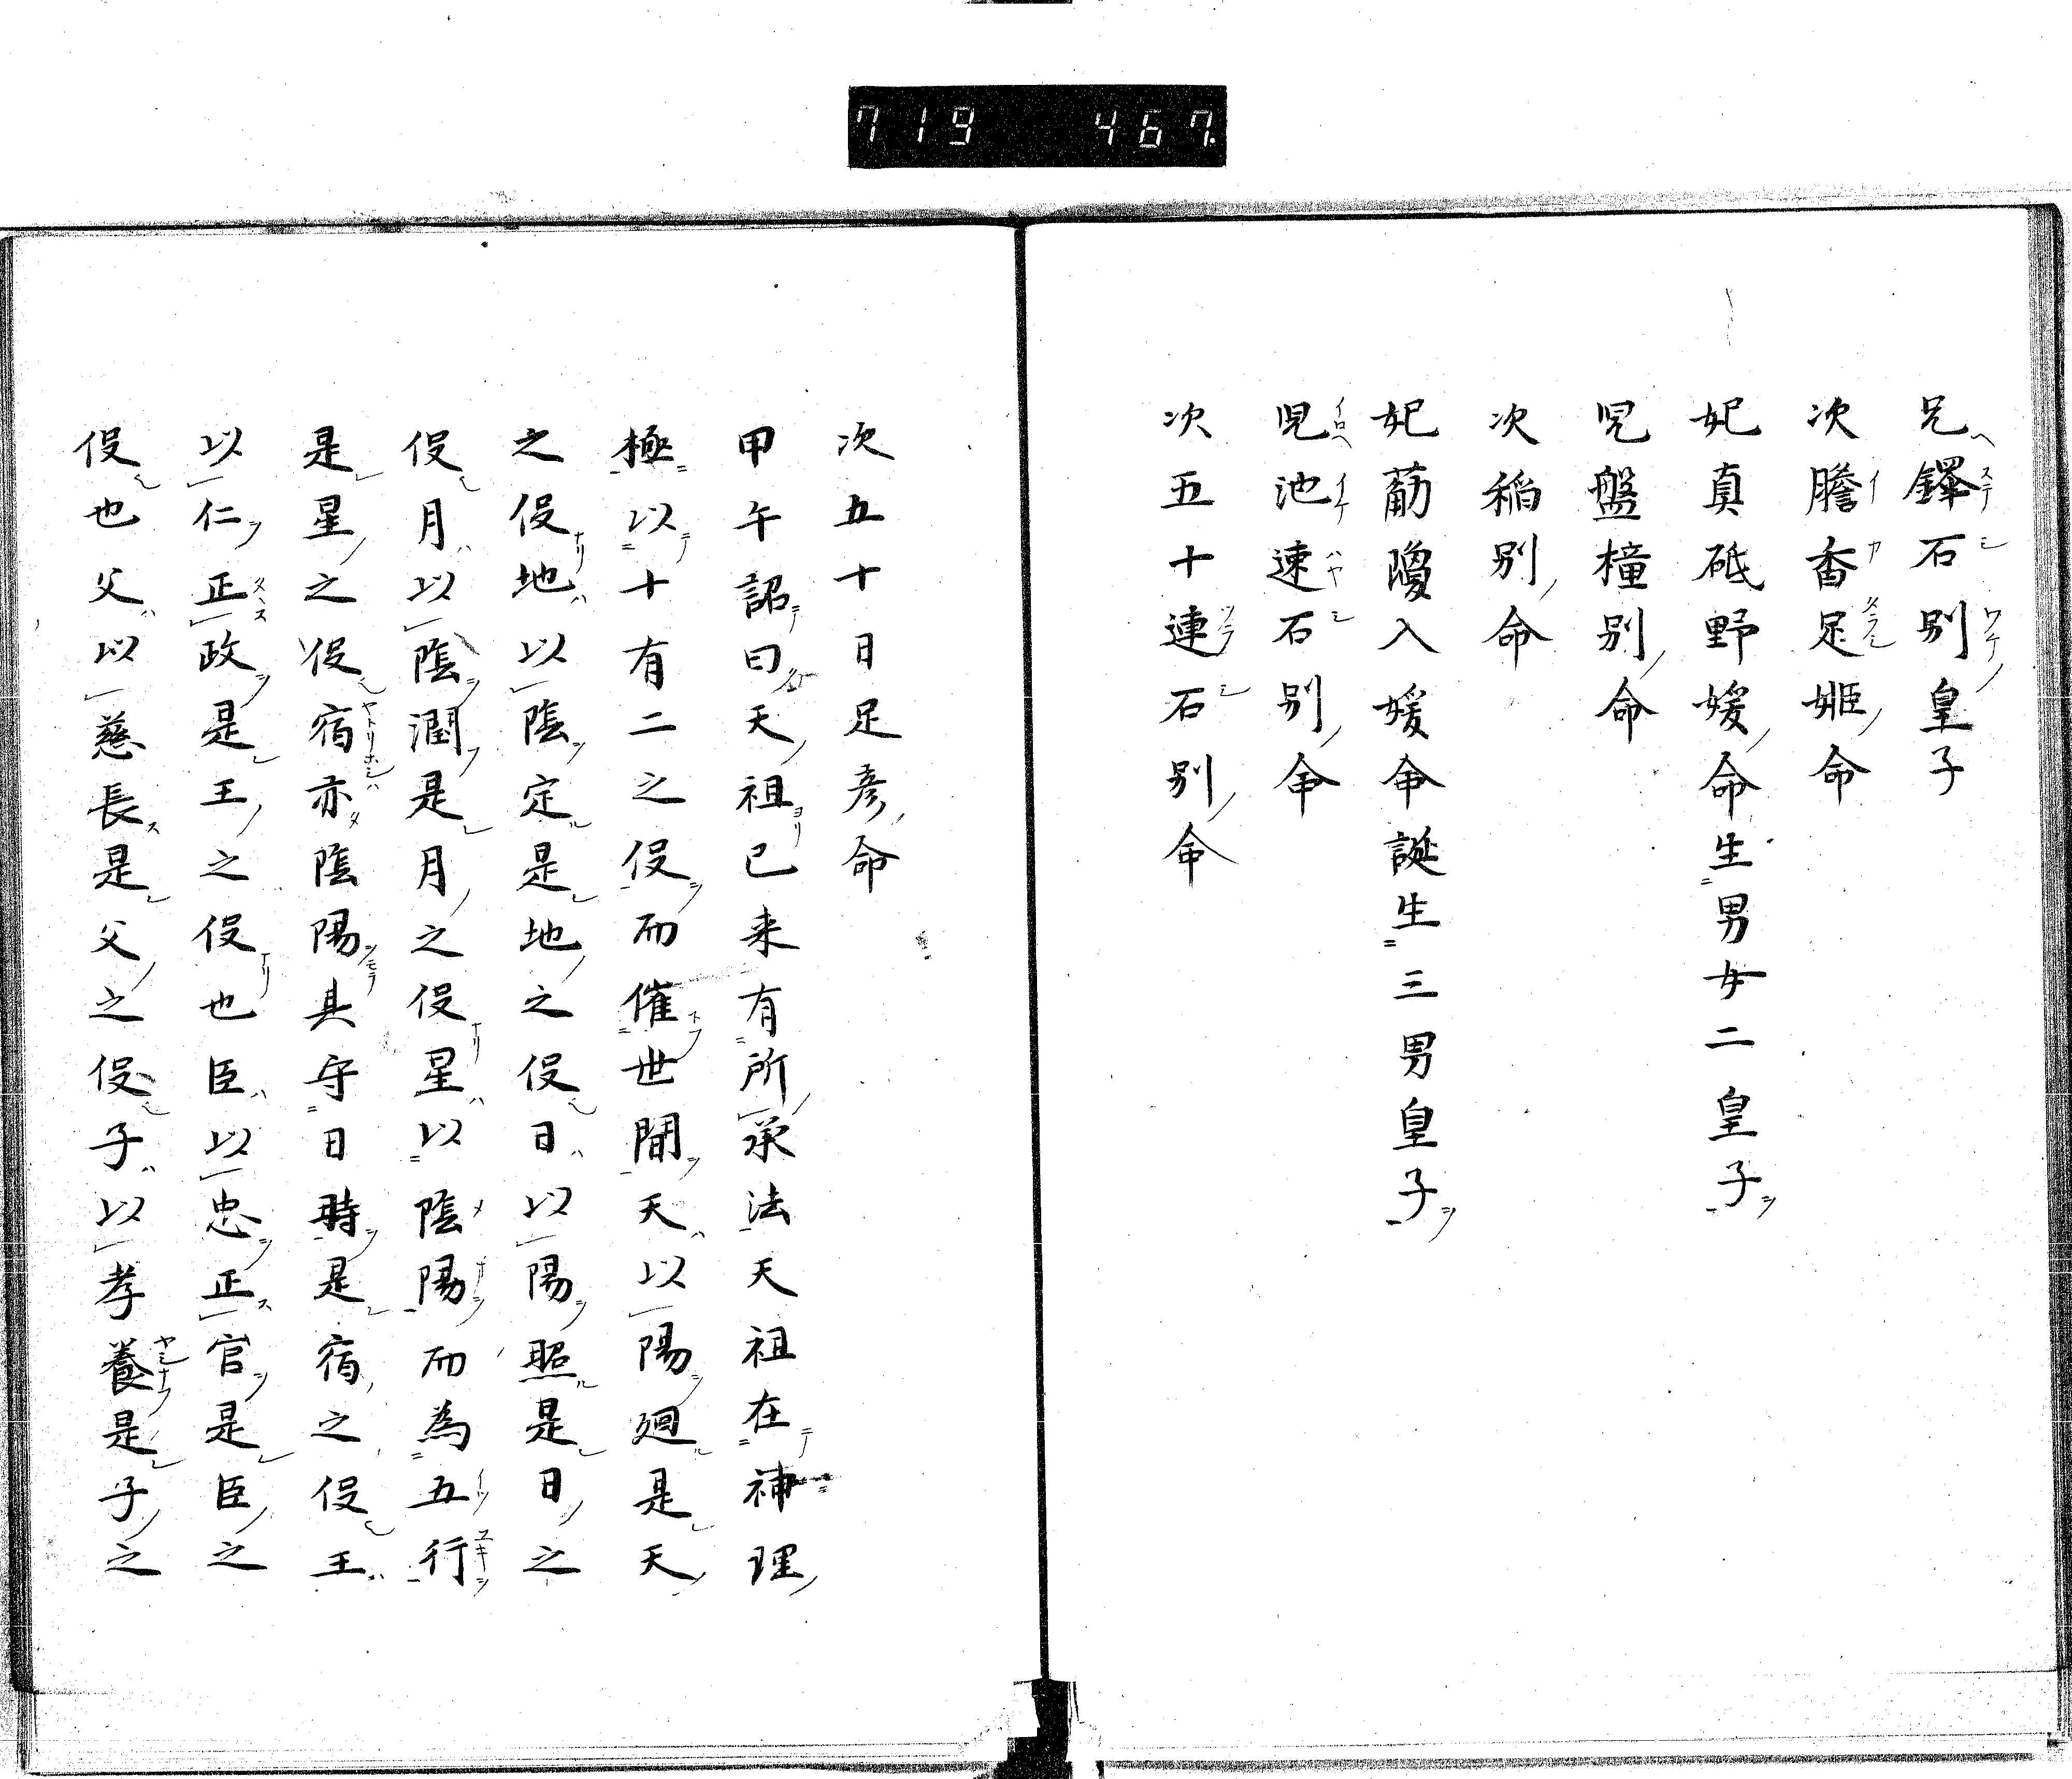 719 467.
兄鐸石別皇子
次膽香足姫命
妃真砥野媛命生男女二皇子
児盤橦別命
次稲別命
妃薊瓊入媛命誕生三男皇子
児池速石別命
次五十連石別命
次五十日足彦命
甲午詔曰天祖已来有所承法天祖在神理
極以十有二之役而催世間天以陽廻是天
之役地以陰定是地之役日以陽照是日之
役月以陰潤是月之役星以陰陽而為五行
是星之役宿亦陰陽具守日時是宿之役王
以仁正政是王之役也臣以忠正官是臣之
役也父以慈長是父之役子以孝養是子之